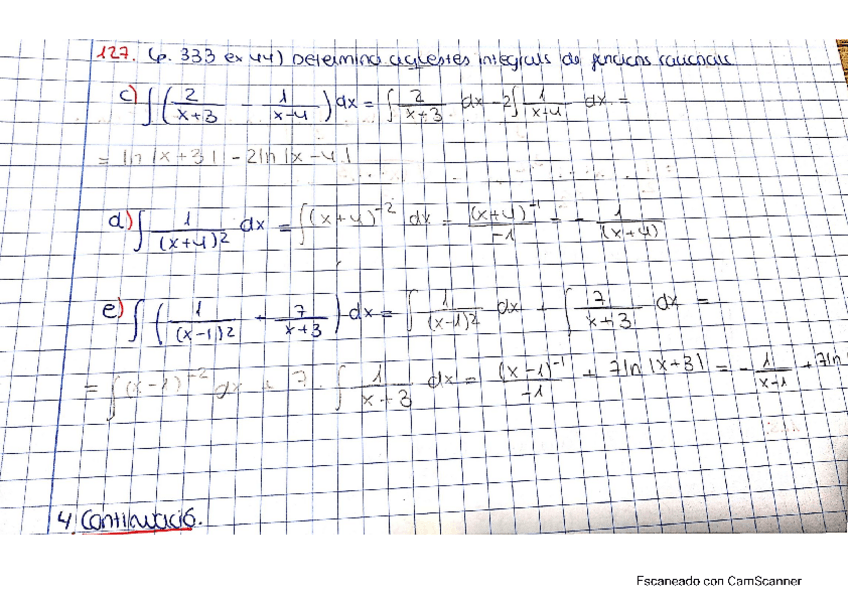 127. (p. 333 ex 44) Determina aquestes integrals de funcions racionals
c) ∫(2/(x+3) - 1/(x-4))dx = ∫ 2/(x+3) dx - 2∫ 1/(x+4) dx =
= ln|x+3| - 2ln|x-4|
d) ∫ 1/(x+4)² dx = ∫(x+4)⁻² dx = (x+4)⁻¹/-1 = - 1/(x+4)
e) ∫(1/(x-1)² + 7/(x+3))dx = ∫ 1/(x-1)² dx + ∫ 7/(x+3) dx =
= ∫(x-1)⁻² dx + 7·∫ 1/(x+3) dx = (x-1)⁻¹/-1 + 7ln|x+3| = - 1/(x-1) + 7ln
4 Continuació.
Escaneado con CamScanner